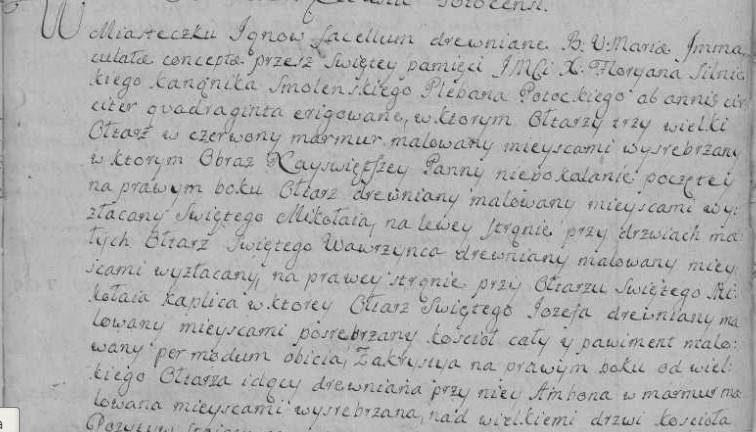 Potocensi.
W Miasteczku Ignow Sacellum drewniane B. V. Mariæ Imma
culatæ conceptæ przesz Swiętey pamięci JMCi X. Floryana Silnic
kiego kanonika Smolenskiego Plebana Potockiego ab annis cir
citer quadraginta erigowane, w ktorym Ołtarzy trzy wielki
Ołtarz w czerwony marmur malowany mieyscami wysrebrzany
w ktorym Obraz Nayswiętszey Panny niepokalanie poczętei
na prawym boku Ołtarz drewniany malowany mieyscami wy:
złacany Swiętego Mikołaia, na lewey stronie przy drzwiach ma
łych Ołtarz Swiętego Wawrzynca drewniany malowany miey
scami wyzłacany, na prawey stronie przy Ołtarzu Swiętego Mi
kołaia kaplica w ktorey Ołtarz Swiętego Iozefa drewniany ma
lowany mieyscami posrebrzany koscioł cały y pawiment malo:
wany per modum obicia, Zakrystya na prawym boku od wiel
kiego Ołtarza idący drewniana przy niey Ambona w marmur ma
lowana mieyscami wysrebrzana, nad wielkiemi drzwi kosciola
Pozytyw